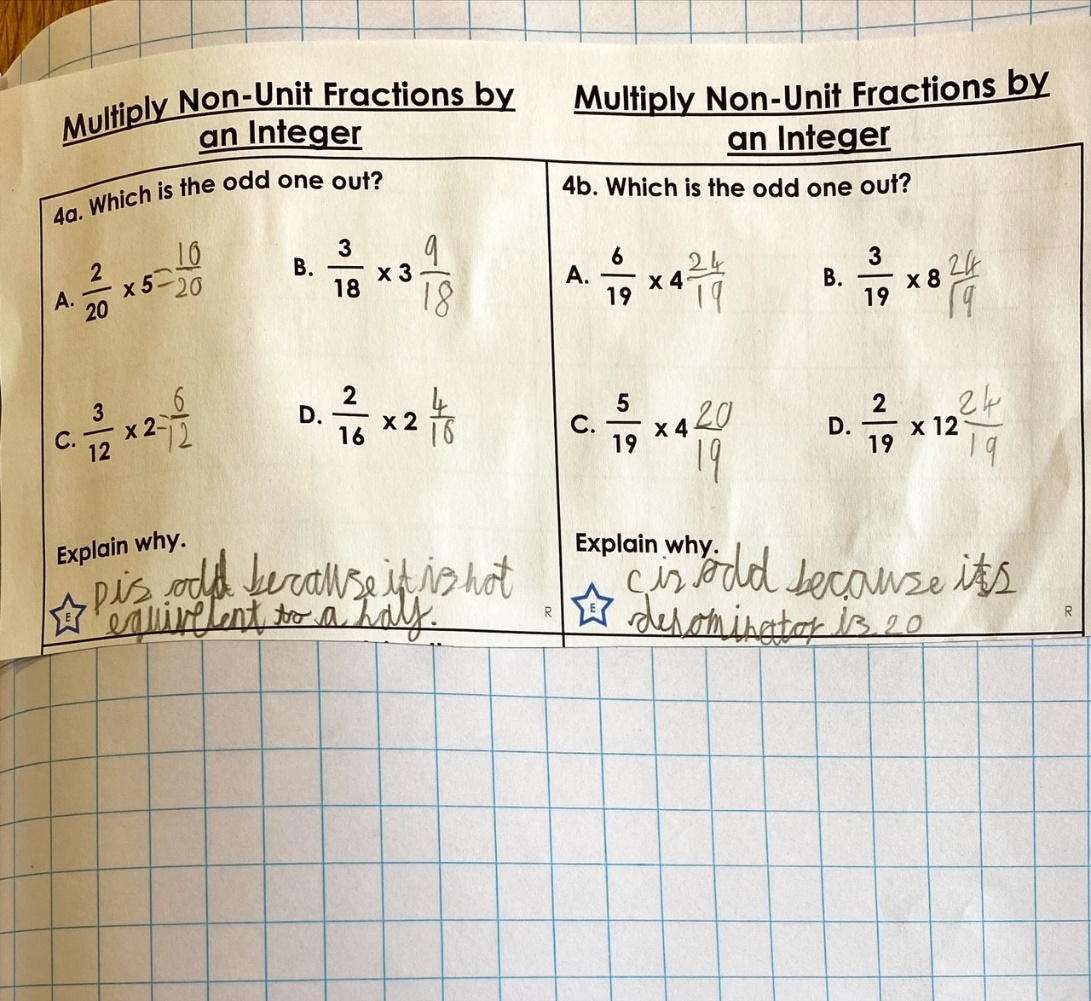 Multiply Non-Unit Fractions by
an Integer
4a. Which is the odd one out?
A. 2/20 x 5 = 10/20
B. 3/18 x 3 9/18
C. 3/12 x 2 - 6/12
D. 2/16 x 2 4/16
Explain why.
D is odd because it is not
equivelent to a half.
E
R
Multiply Non-Unit Fractions by
an Integer
4b. Which is the odd one out?
A. 6/19 x 4 24/19
B. 3/19 x 8 24/19
C. 5/19 x 4 20/19
D. 2/19 x 12 24/19
Explain why.
C is odd because its
denominator is 20
E
R